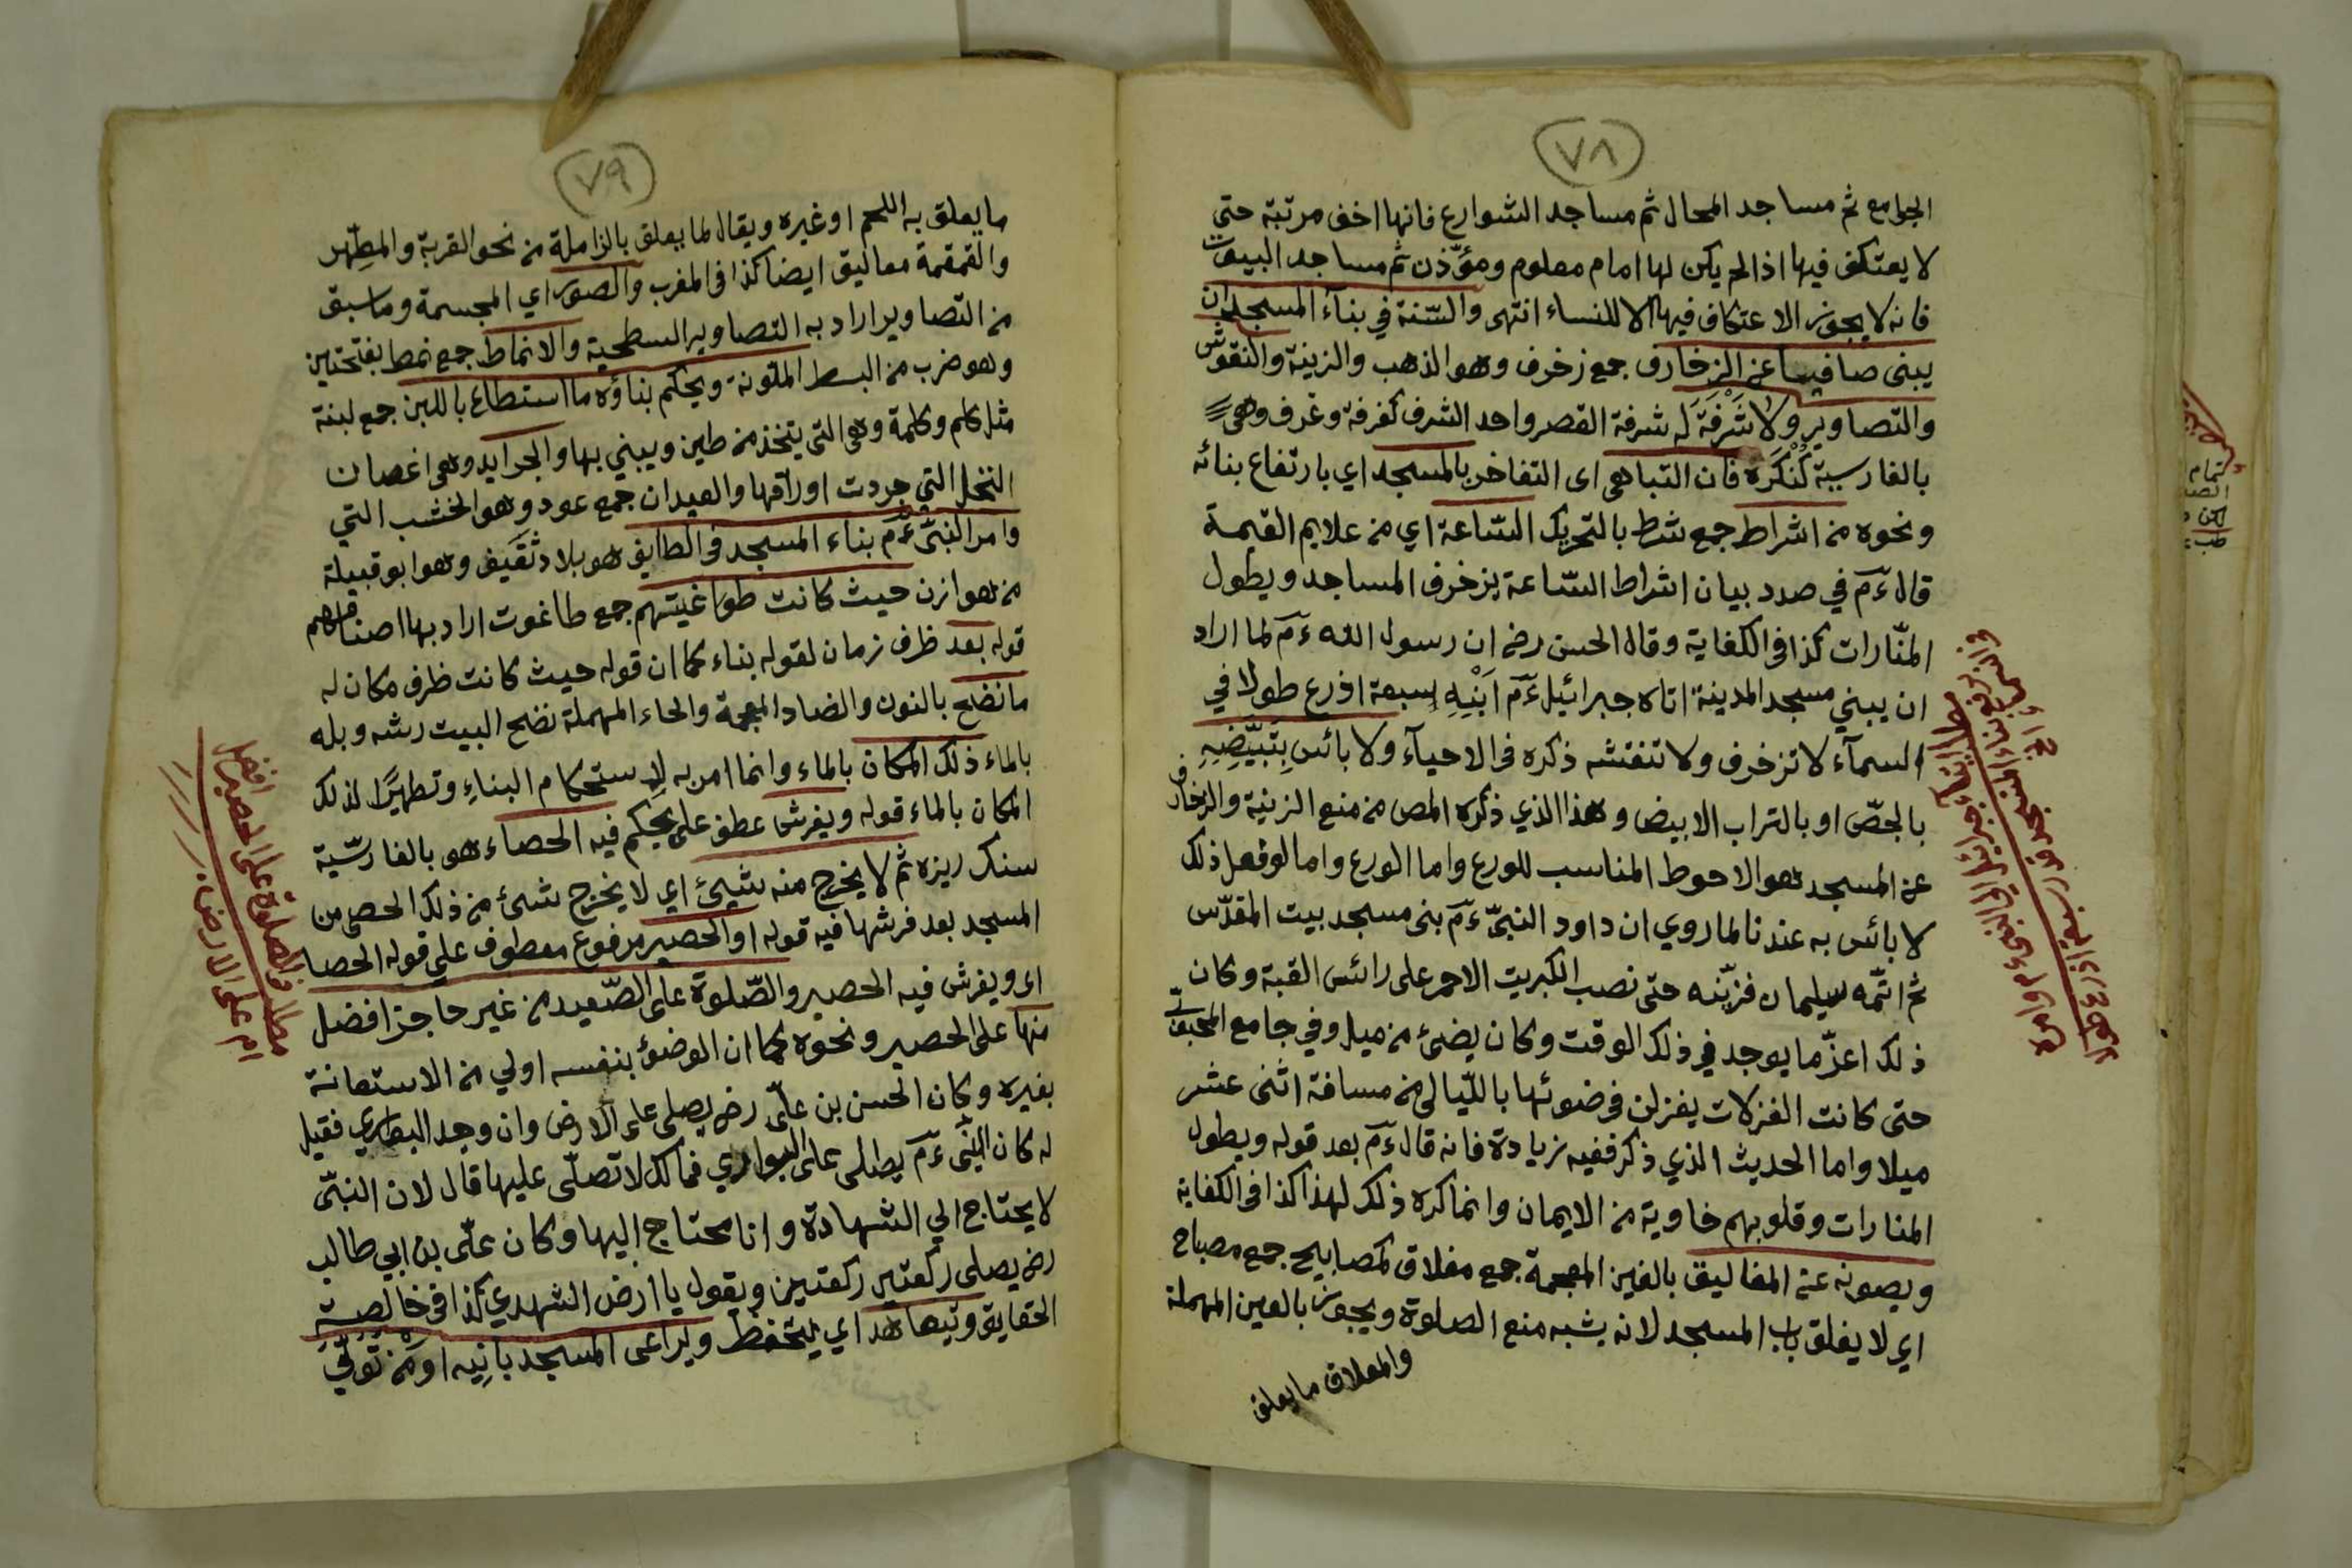 ٧٨
الجوامع ثم مساجد المحال ثم مساجد الشوارع فانها اخف مرتبة حتى
لا يعتكف فيها اذا لم يكن لها امام معلوم ومؤذن ثم مساجد البيوت
فانه لا يجوز الاعتكاف فيها الا للنساء انتهى والسّنة في بنآء المسجد ان
يبنى صافيا عن الزخارف جمع زخرف وهو الذهب والزينة والنقوش
والتصاوير ولا شَرْفَةَ له شرفة القصر واحد الشرف كغرفة وغرف وهى
بالفارسية كُنْكَرَه فان التباهى اى التفاخر بالمسجد اي بارتفاع بنائه
ونحوه من اشراط جمع شرط بالتحريك السّاعة اي من علايم القيمة
قال ءم في صدد بيان اشراط السّاعة يزخرف المساجد ويطول
المنّارات كذا فى الكفاية وقال الحسن رضى ان رسول الله ءم لما اراد
ان يبني مسجد المدينة اتاه جبرائيل ءم اَبْنِيهِ سبعة اذرع طولا في
السمآء لا تزخرف ولا تنقشه ذكره فى الاحيآء ولا بائس بِتَبيّضِيهِ
بالجصّ او بالتراب الابيض وهذا الذي ذكره المص من منع الزينة والزخارف
عن المسجد هو الاحوط المناسب للورع واما الورع واما لو فعل ذلك
لا بائس به عندنا لما روي ان داود النبىّ ءم بنى مسجد بيت المقدّس
ثم اتمّه سليمان فزيّنه حتى نصب الكبريت الاحمر على رائس القبة وكان
ذلك اعزّ ما يوجد في ذلك الوقت وكان يضئ من ميل وفي جامع المحبوبّى
حتى كانت الغزلات يغزلن فى ضوئها بالليّالى من مسافة اثنى عشر
ميلا واما الحديث الذي ذكر ففيه زيادة فانه قال ءم بعد قوله ويطول
المنارات وقلوبهم خاوية من الايمان وانما كره ذلك لهذا كذا فى الكفاية
ويصونه عن المغاليق بالغين المعجمة جمع مغلاق كمصابيح جمع مصباح
اي لا يغلق باب المسجد لانه يشبه منع الصلوة ويجوز بالعين المهملة
والمعلاق ما يعلق
٧٩
ما يعلق به اللحم او غيره ويقال لما يعلق بالزاملة من نحو القربة والمطِهّر
والقمقمة معاليق ايضا كذا فى المغرب والصور اي المجسمة وما سبق
من التصاوير اراد به التصاوير السطحية والانماط جمع نمط بفتحتين
وهو ضرب من البسط الملونة ويحكم بناؤه ما استطاع باللبن جمع لبنة
مثل كلم وكلمة وهى التى يتخذ من طين ويبني بها والجرايد وهى اغصان
النخل التي جردت اوراقها والعيدان جمع عود وهو الخشب التي
وامر النبىّ ءم بناء المسجد فى الطايف هو بلاد ثَقَيف وهو ابو قبيلة
من هوازن حيث كانت طواغيتهم جمع طاغوت اراد بها اصنامهم
قوله بعد ظرف زمان لقوله بناء كما ان قوله حيث كانت ظرف مكان له
ما نضح بالنون والضاد المعجمة والحاء المهملة نضح البيت رشه وبله
بالماء ذلك المكان بالماء وانما امر به لاِستحكام البناءِ وتطهيرًا لذلك
المكان بالماء قوله ويفرش عطف على يحكم فيه الحصاء هو بالفارسّية
سنك ريزه ثم لا يخرج منه شيئ اي لا يخرج شئ من ذلك الحصى من
المسجد بعد فرشها فيه قوله او الحصير مرفوع معطوف على قوله الحصا
اى ويفرش فيه الحصير والصّلوة على الصّعيد من غير حاجز افضل
منها على الحصير ونحوه كما ان الوضوء بنفسه اولي من الاستعانة
بغيره وكان الحسن بن علىّ رضى يصلى على الارض وان وجد البوارى فقيل
له كان النبّى ءم يصلى على البوارى فما لك لا تصلّى عليها قال لان النبّى
لا يحتاج الي الشهادة وانا محتاج اليها وكان علّى بن ابي طالب
رضى يصلى ركعتين ركعتين ويقول يا ارض اشهدى كذا فى خالصة
الحقايق ويتعاهد اي يتحفظ ويراعى المسجد بانِيه او من توَلّي
مطلب والصلوة على الحصير افضل
ام على الارض